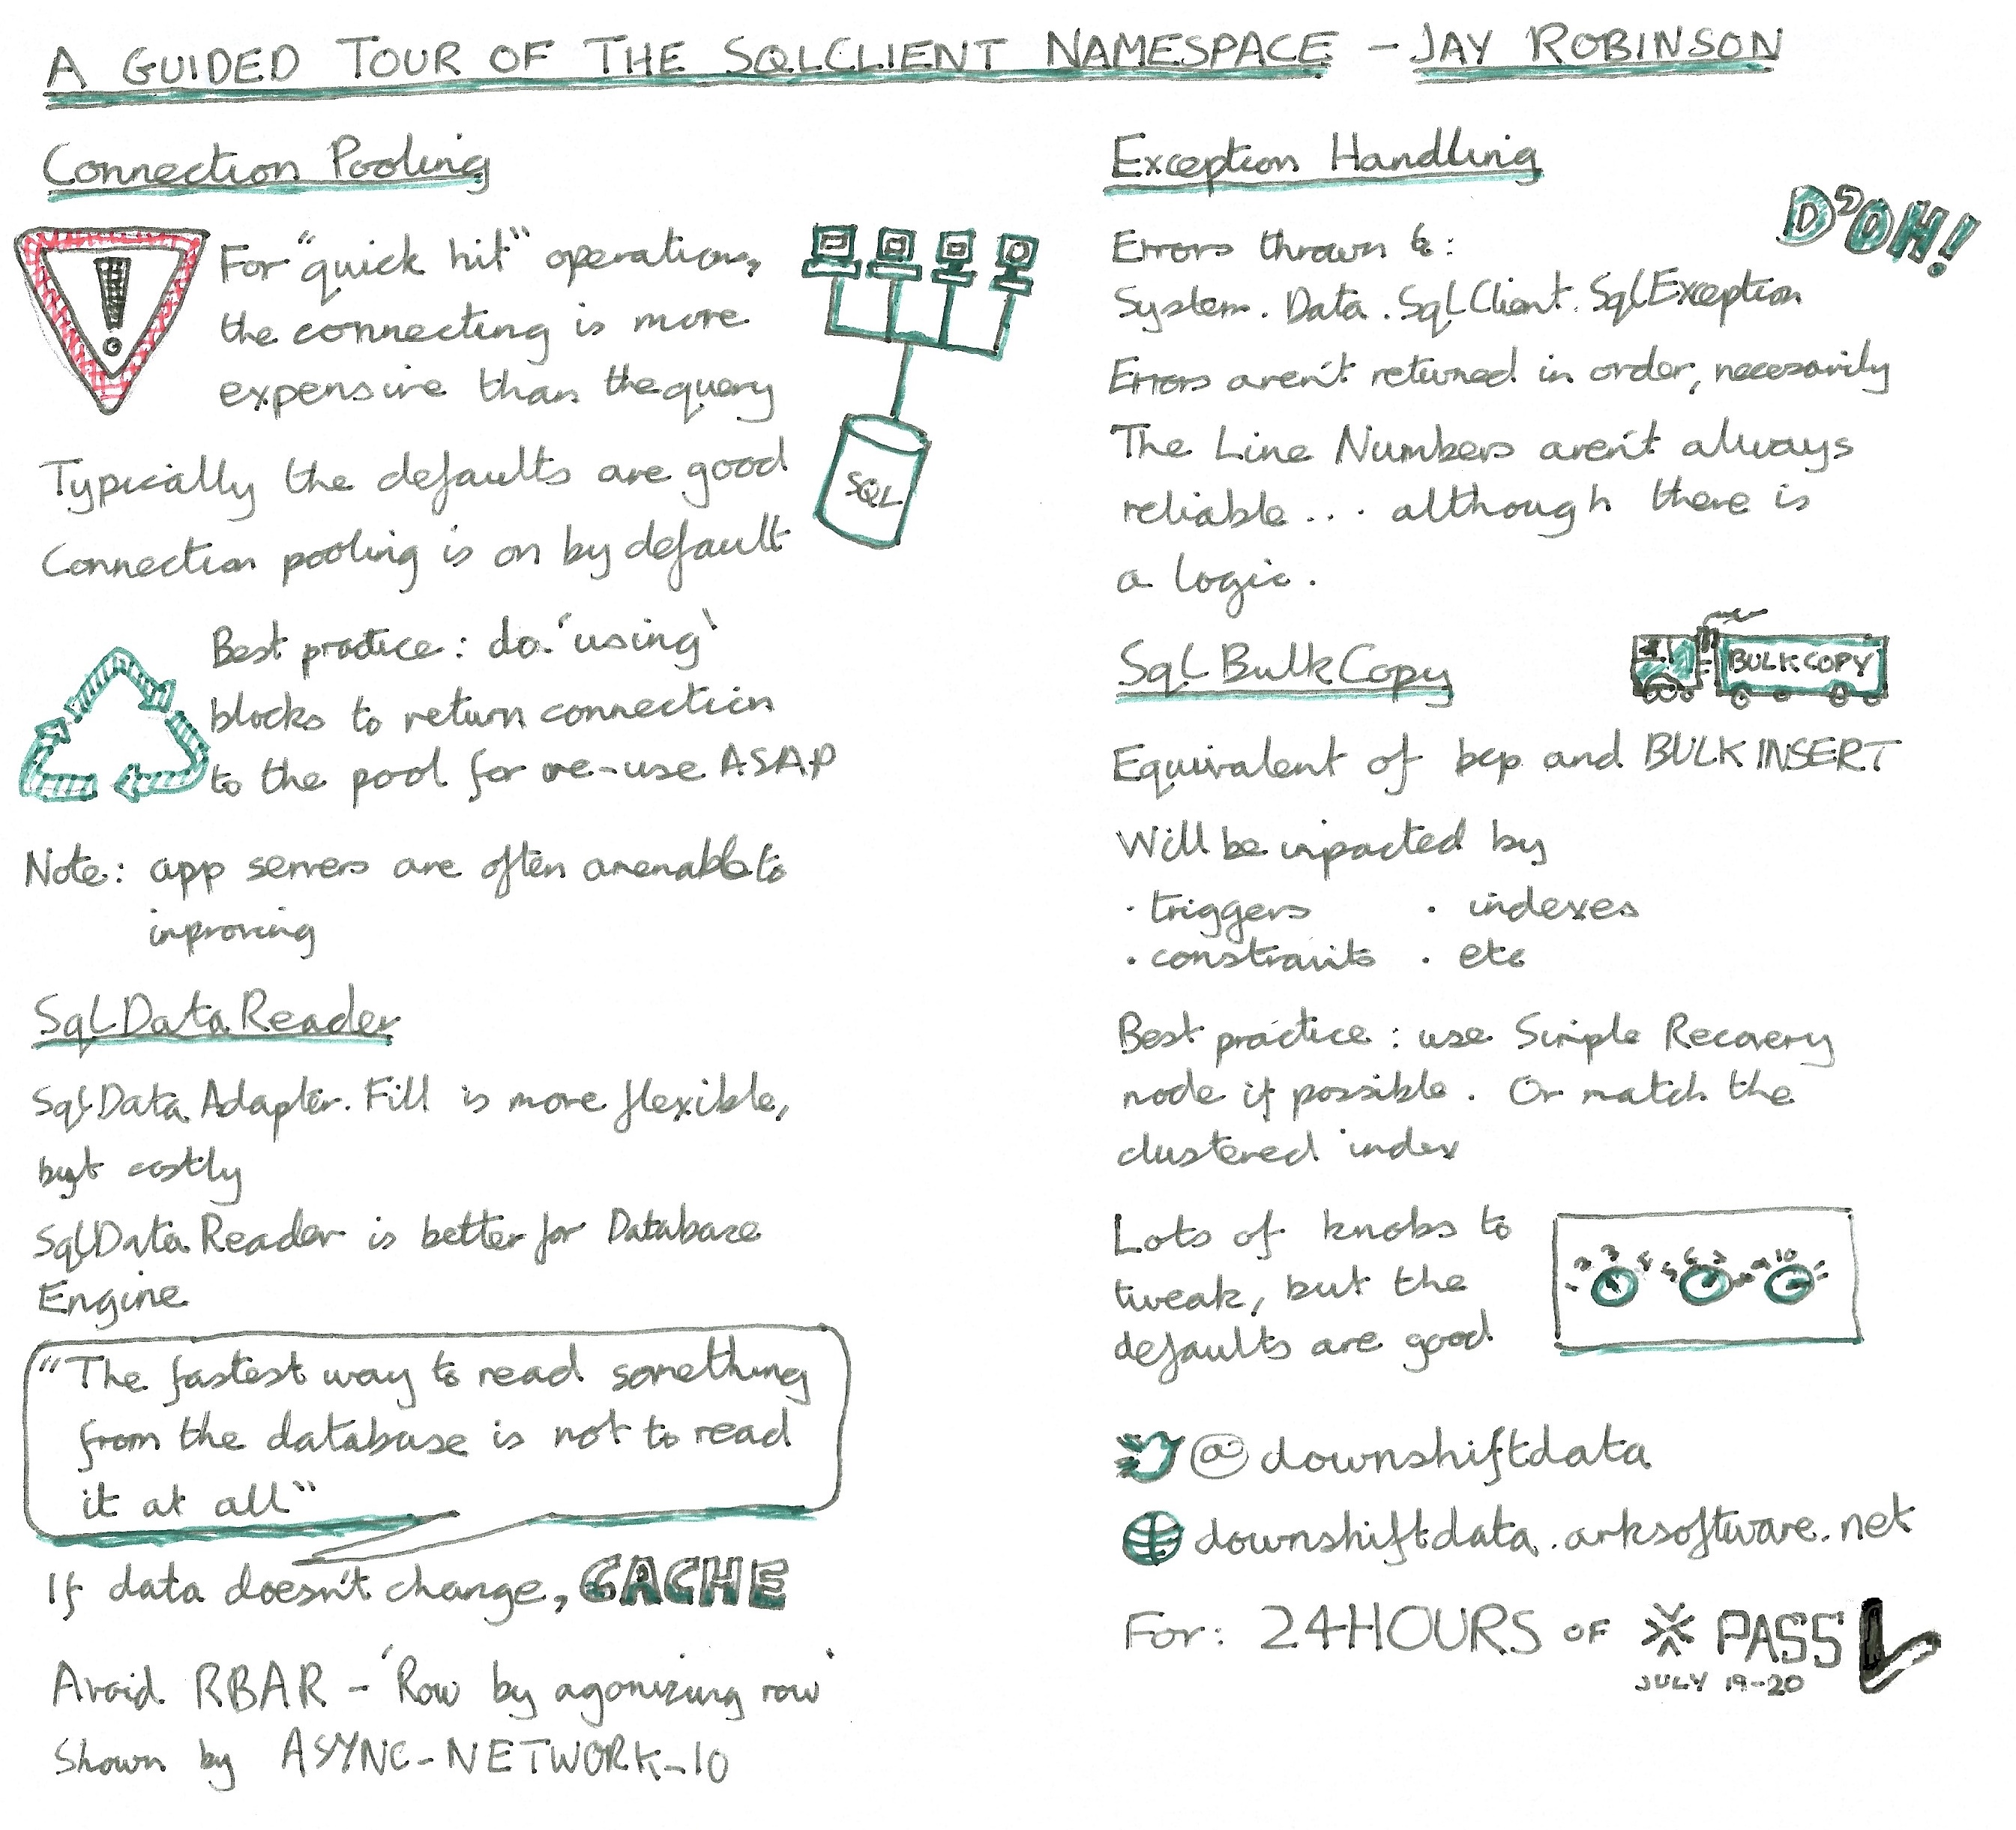 A GUIDED TOUR OF THE SQLCLIENT NAMESPACE - JAY ROBINSON
Connection Pooling
For "quick hit" operations,
the connecting is more
expensive than the query
SQL
Typically the defaults are good
Connection pooling is on by default
Best practice: do 'using'
blocks to return connection
to the pool for re-use ASAP
Note: app servers are often amenable to
improving
SqlDataReader
SqlDataAdapter.Fill is more flexible,
but costly
SqlDataReader is better for Database
Engine
"The fastest way to read something
from the database is not to read
it at all"
If data doesn't change, CACHE
Avoid RBAR - 'Row by agonizing row'
Shown by ASYNC-NETWORK-IO
Exception Handling
D'OH!
Errors thrown to:
System.Data.SqlClient.SqlException
Errors aren't returned in order, necessarily
The Line Numbers aren't always
reliable... although there is
a logic.
SqlBulkCopy
BULKCOPY
Equivalent of bcp and BULK INSERT
Will be impacted by
· triggers · indexes
· constraints · etc
Best practice: use Simple Recovery
mode if possible. Or match the
clustered index
Lots of knobs to
tweak, but the
defaults are good
@downshiftdata
downshiftdata.arksoftware.net
For: 24HOURS OF PASS
JULY 19-20